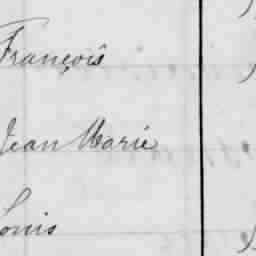 François
Jean Marie
Louis